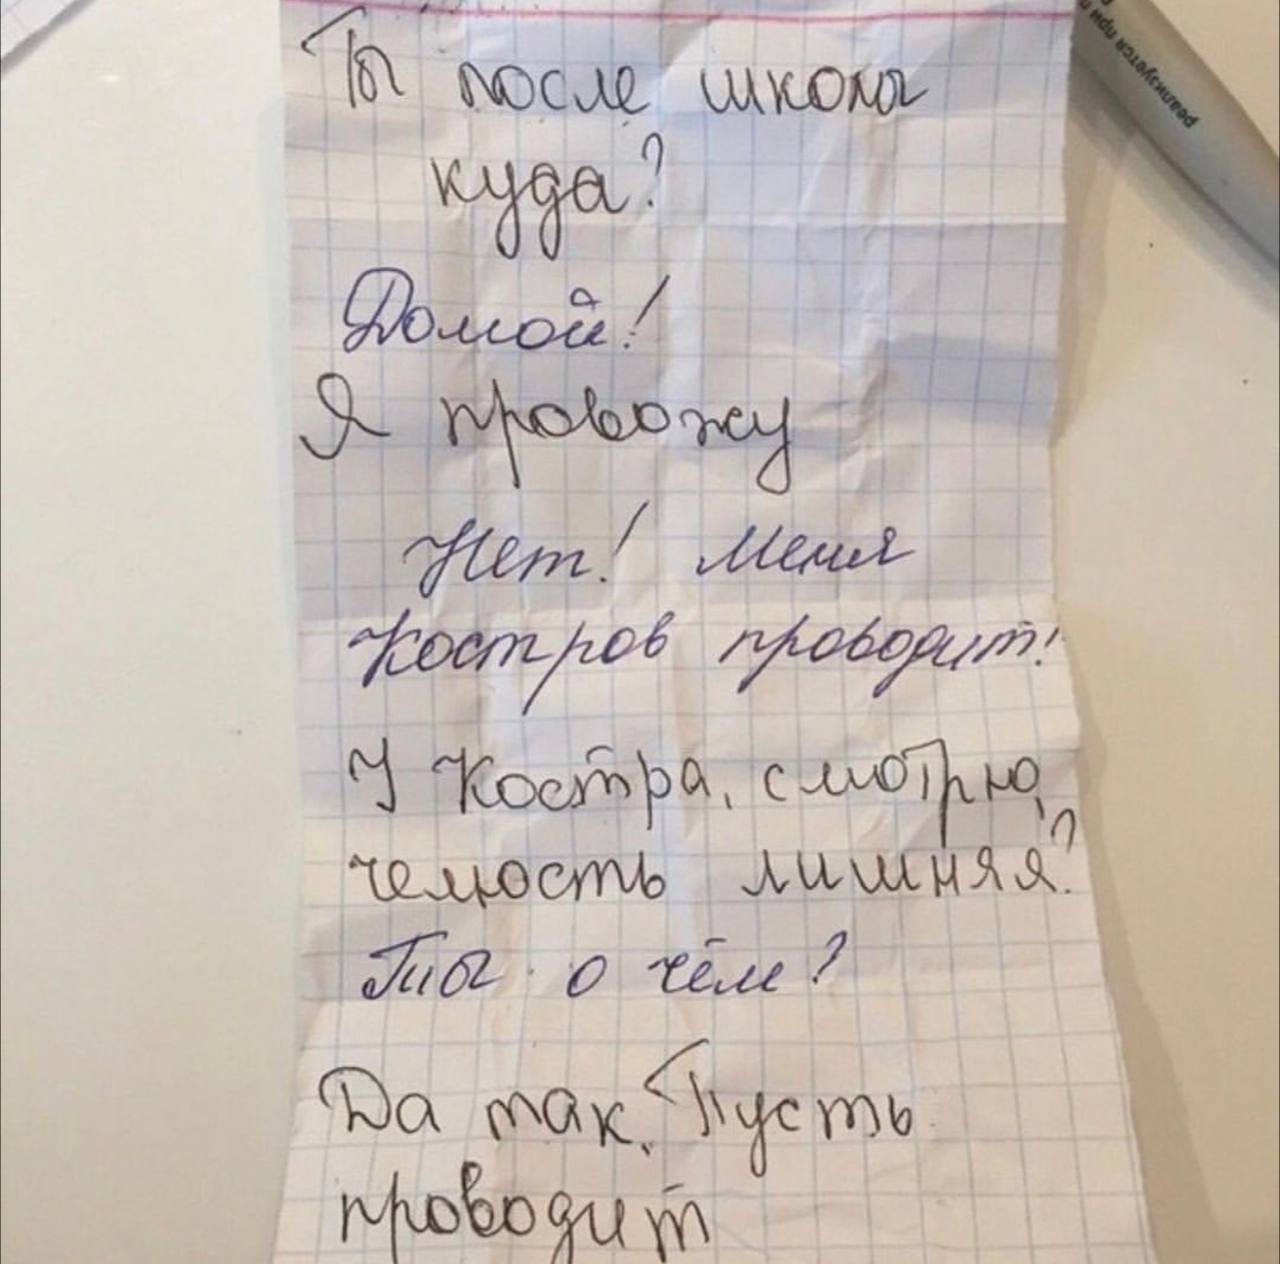 Ты после школы
куда?
Домой!
Я провожу
Нет! Меня
Костров проводит!
У Костра, смотрю,
челюсть лишняя?
Ты о чём?
Да так. Пусть
проводит
реализуется при